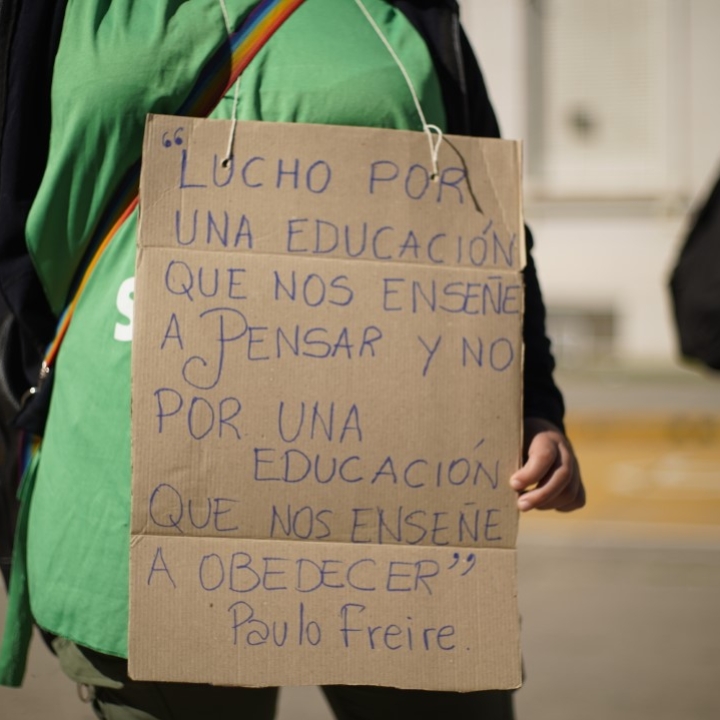 “LUCHO POR
UNA EDUCACIÓN
QUE NOS ENSEÑE
A PENSAR Y NO
POR UNA
EDUCACIÓN
QUE NOS ENSEÑE
A OBEDECER”
Paulo Freire.
S